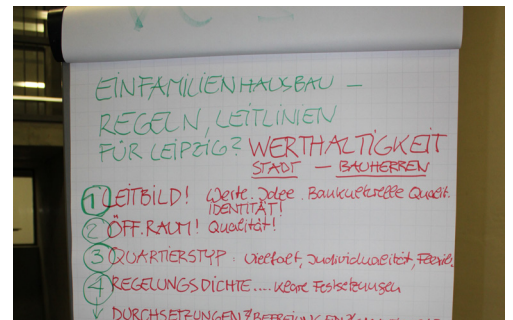 EINFAMILIENHAUSBAU —
REGELN, LEITLINIEN
FÜR LEIPZIG? WERTHALTIGKEIT
STADT — BAUHERREN
1 LEITBILD! Werte. Idee. Baukulturelle Qualit.
IDENTITÄT!
2 ÖFF. RAUM! Qualität!
3 QUARTIERSTYP: Vielfalt, Individualität,
4 REGELUNGSDICHTE.... klare Festsetzungen
DURCHSETZUNGEN BEFREIUNGEN